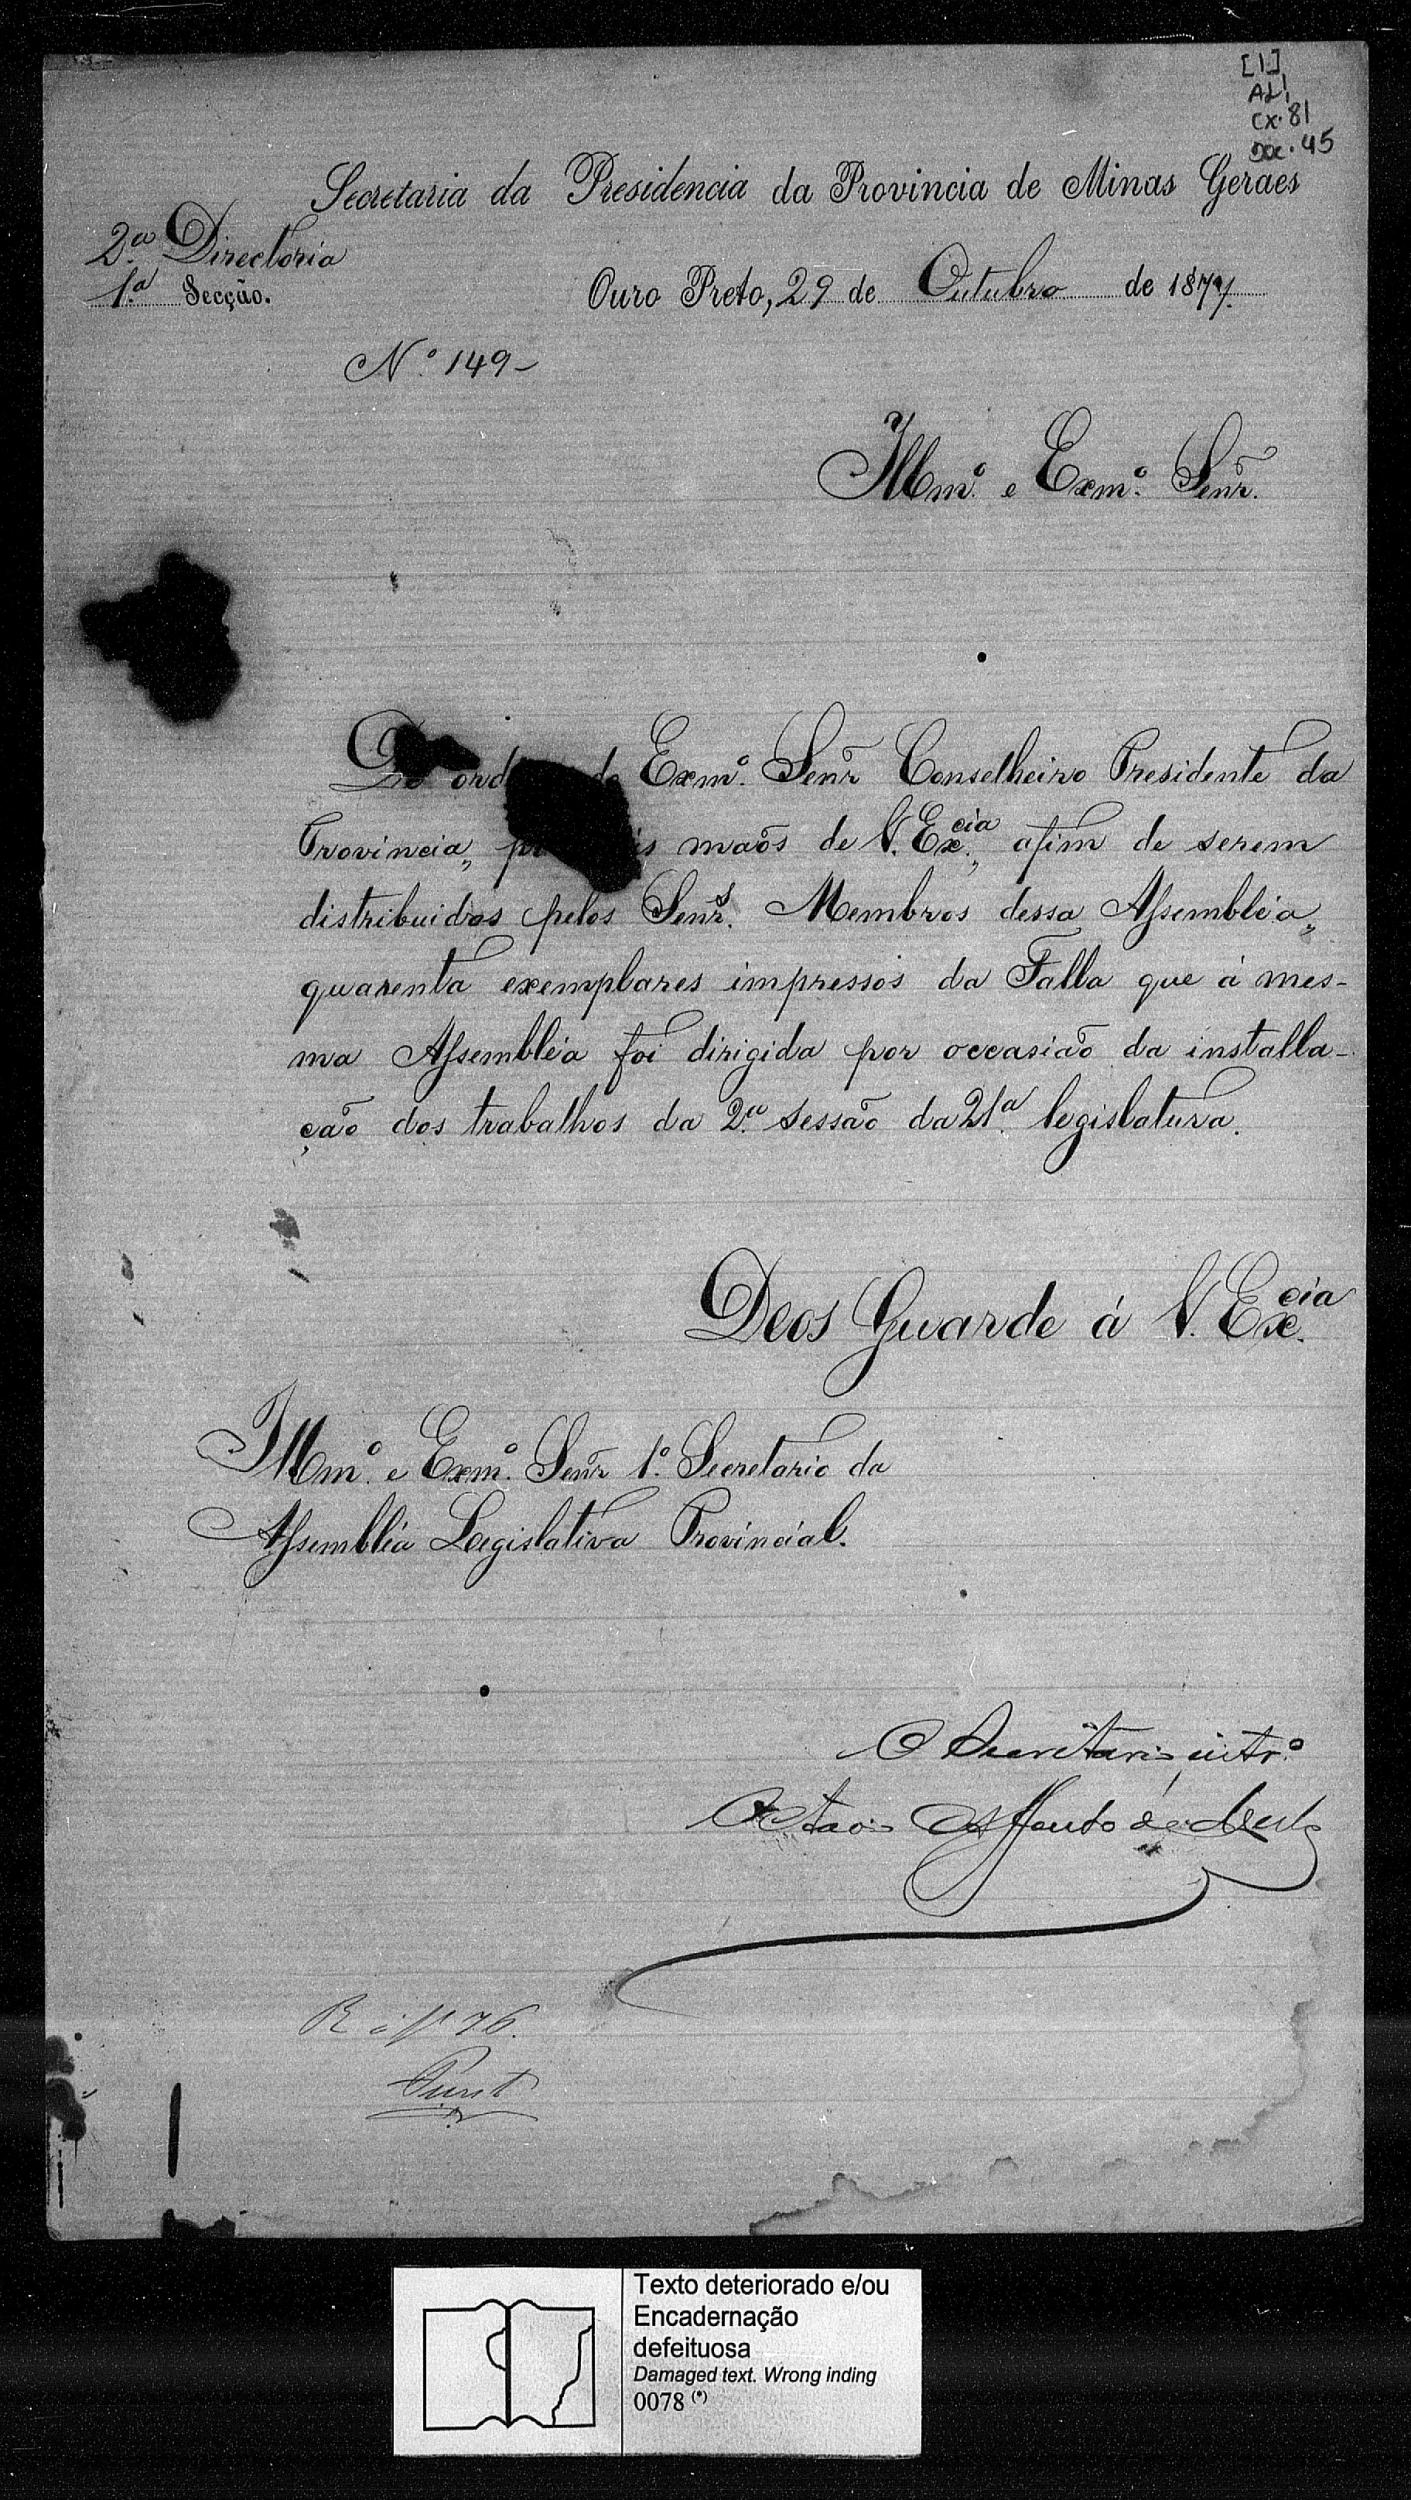 [1]
AL1
cx. 81
Doc. 45
Secretaria da Presidencia da Provincia de Minas Geraes
2.ª Directoria
1.ª Secção.
Ouro Preto, 29 de Outubro de 1877.
N.º 149-
Illm.º e Exm.º Senr.
De ord do Exm.º Senr Conselheiro Presidente da
Provincia, is maõs de V. Ex.cia, afim de serem
distribuidos pelos Senrs. Membros dessa Assembléa,
quarenta exemplares impressos da Falla que á mes-
ma Assembléa foi dirigida por occasião da installa-
ção dos trabalhos da 2.ª sessão da 21.ª legislatura.
Deos Guarde á V. Ex.cia
Illm.º e Exm.º Senr 1.º Secretario da
Assembléa Legislativa Provincial.
O Secretario intr.º
Affonso de
R 76.
Texto deteriorado e/ou
Encadernação
defeituosa
Damaged text. Wrong inding
0078 (*)